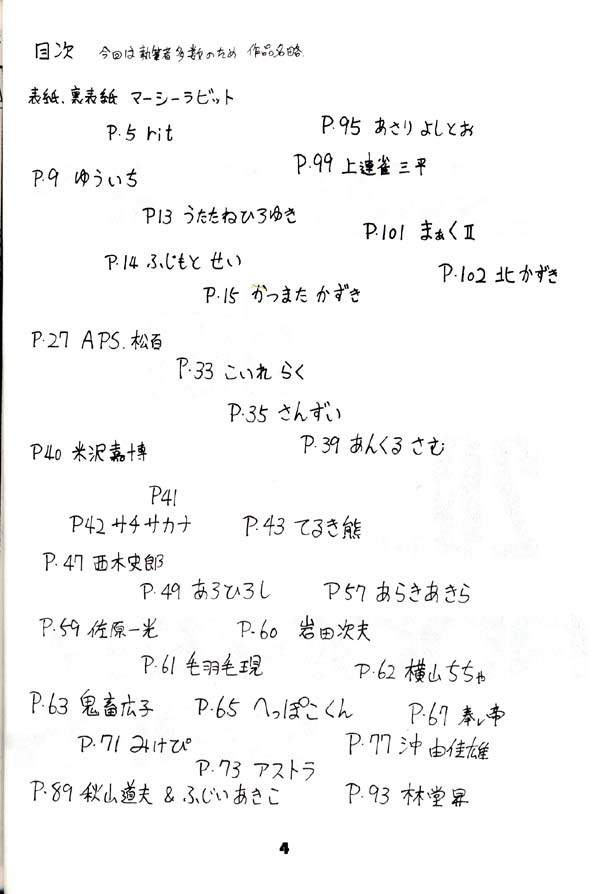 目次 今回は執筆者多数のため 作品名略.
表紙.裏表紙 マーシーラビット
P.5 rit
P.95 あさりよしとお
P.99 上連雀三平
P.9 ゆういち
P13 うたたねひろゆき
P.101 まぁくⅡ
P.14 ふじもと せい
P.102 北かずき
P.15 かつまた かずき
P.27 APS.松百
P.33 こいれ らく
P.35 さんずい
P.39 あんくる さむ
P40 米沢嘉博
P41
P42 サチサカナ
P.43 てるき熊
P.47 西木史郎
P.49 あろひろし
P57 あらきあきら
P.59 佐原一光
P.60 岩田次夫
P.61 毛羽毛現
P.62 横山ちちゃ
P.63 鬼畜広子
P.65 へっぽこくん
P.67
P.71 みけぴ
P.77 沖由佳雄
P.73 アストラ
P.89 秋山道夫 & ふじいあきこ
P.93 林堂昇
4